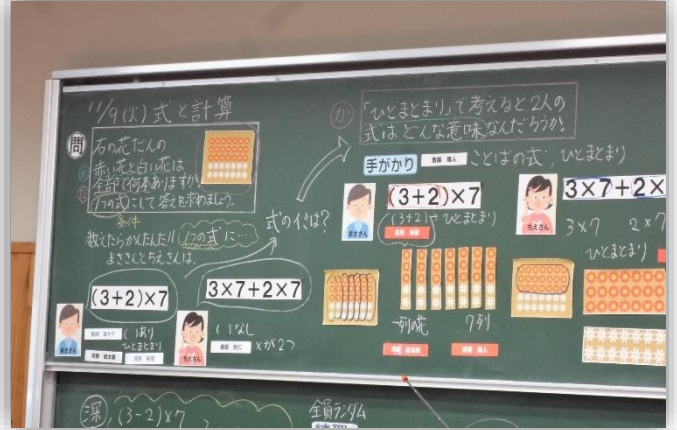 11/9(火) 式と計算
問
右の花だんの
赤い花と白い花は
全部で何本ありますか。
1つの式にして答えを求めましょう。
条件
数えたらかんたん!! 1つの式に…
まきさんとちえさんは、
(3+2)×7
3×7+2×7
まきさん
( )あり
ひとまとまり
ちえさん
( )なし
×が2つ
式のイミは?
か
「ひとまとまり」で考えると2人の
式はどんな意味なんだろうか。
手がかり
ことばの式、ひとまとまり
まきさん
(3+2)×7
(3+2)や ひとまとまり
一列の花
7列
ちえさん
3×7+2×
3×7
2×7
ひとまとまり
深
(3-2)×7
全員ランダム